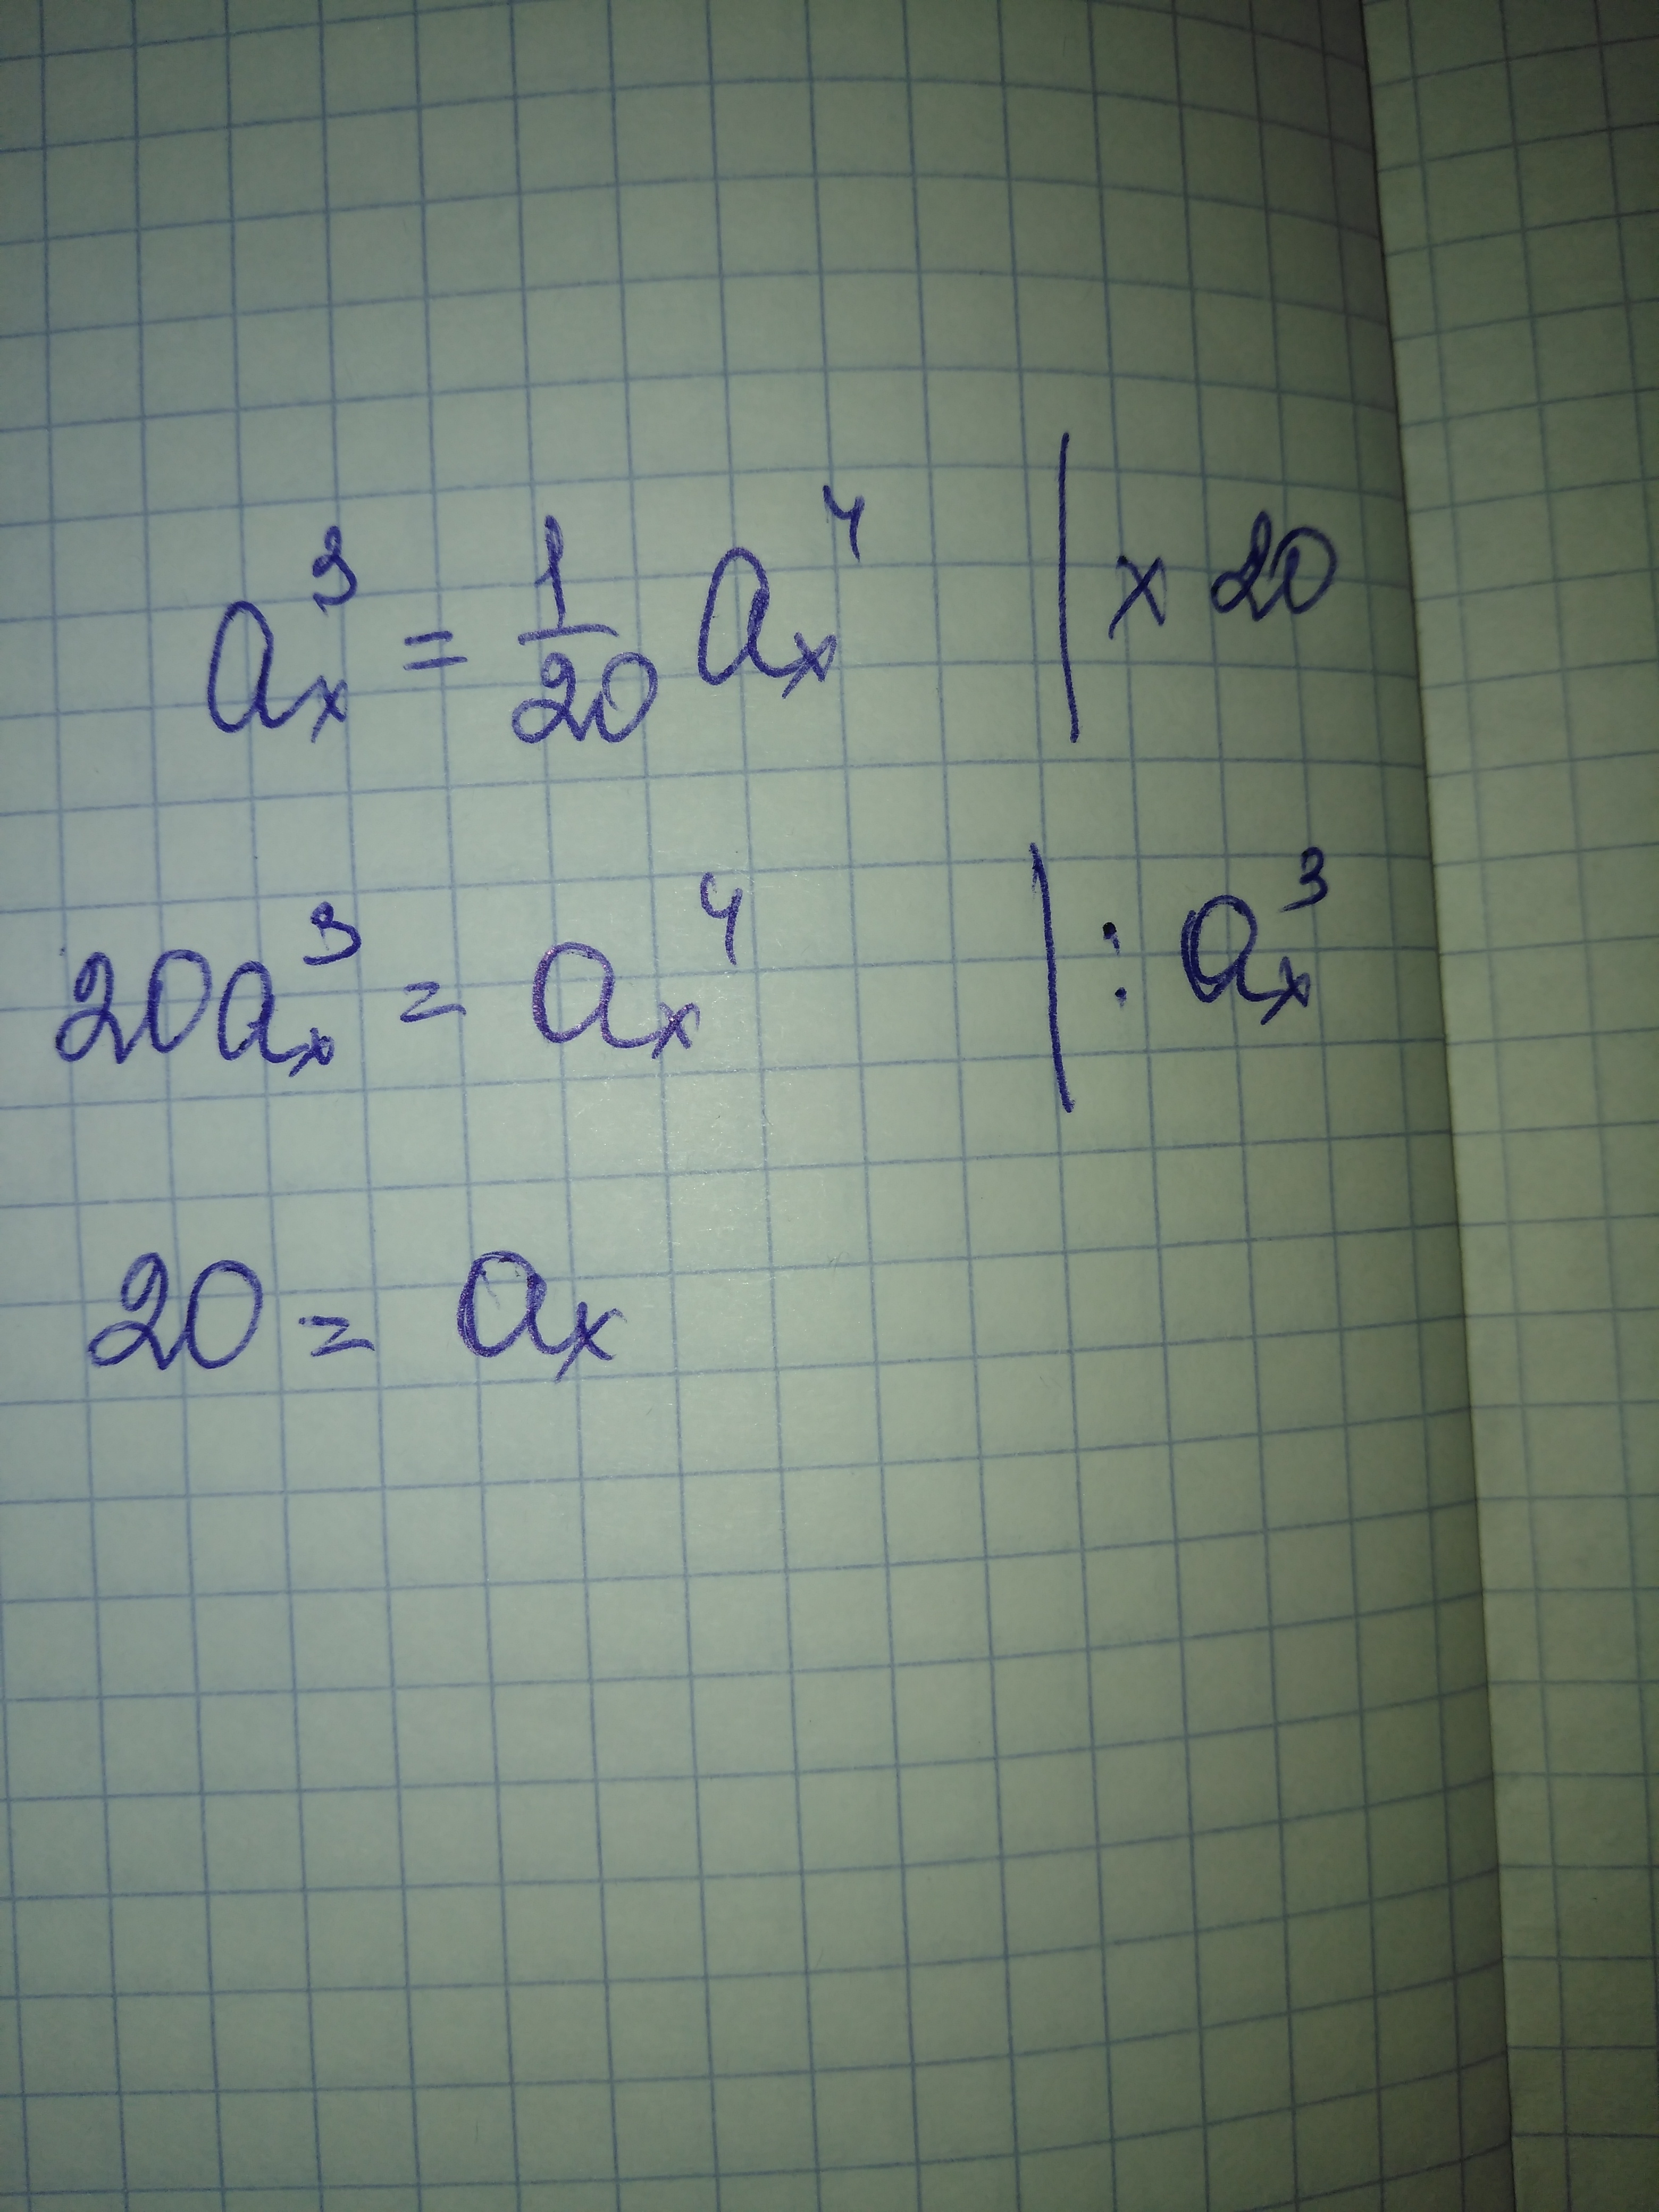 aₓ³ = 1/20 aₓ⁴ | × 20
20aₓ³ = aₓ⁴ | : aₓ³
20 = aₓ